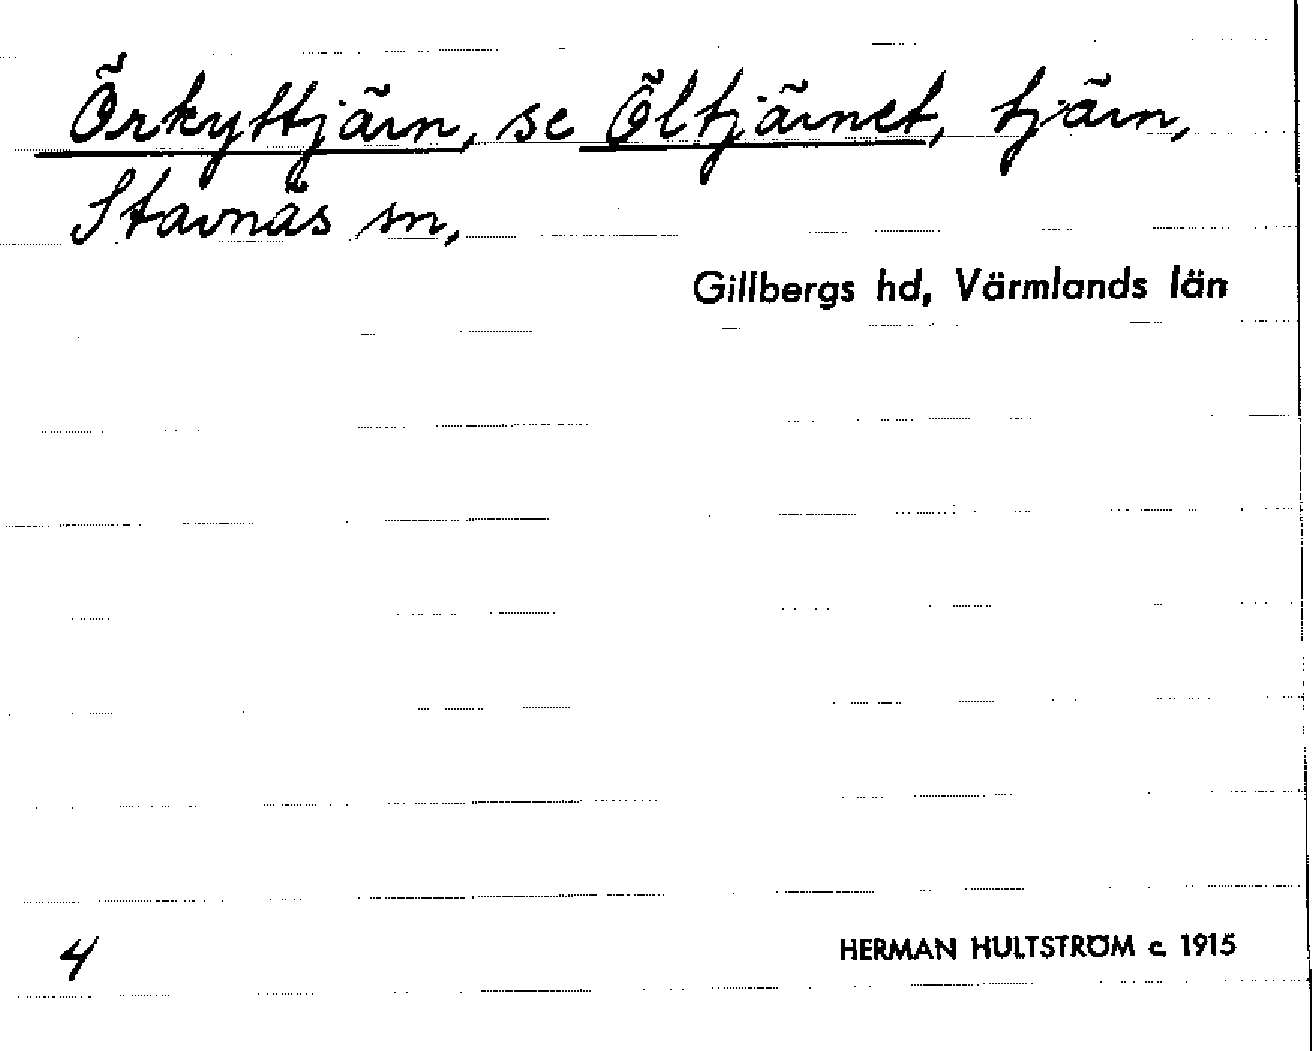 Örkyttjärn, se Öltjärnet, tjärn,
Stavnäs sn,
Gillbergs hd, Värmlands län
4
HERMAN HULTSTRÖM c. 1915